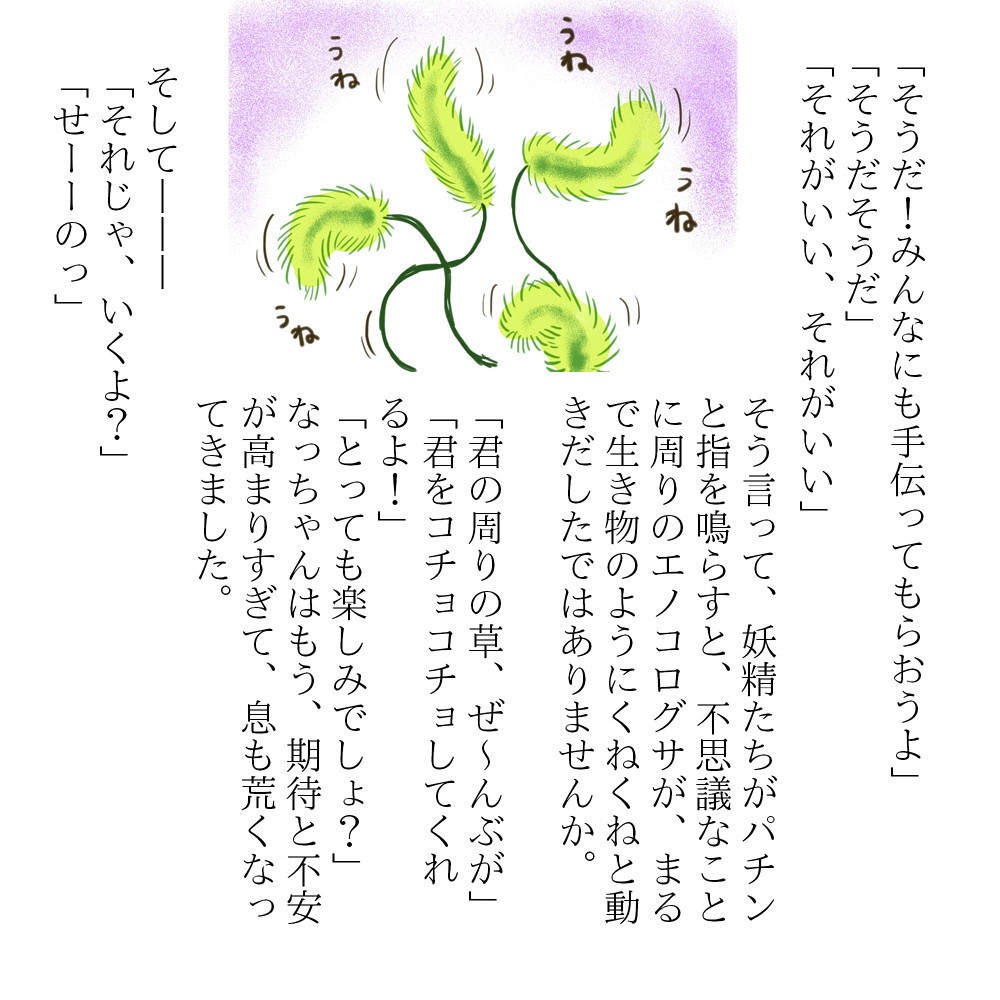 「そうだ！みんなにも手伝ってもらおうよ」
「そうだそうだ」
「それがいい、それがいい」
そう言って、妖精たちがパチン
と指を鳴らすと、不思議なこと
に周りのエノコログサが、まる
で生き物のようにくねくねと動
きだしたではありませんか。
「君の周りの草、ぜ～んぶが」
「君をコチョコチョしてくれ
るよ！」
「とっても楽しみでしょ？」
なっちゃんはもう、期待と不安
が高まりすぎて、息も荒くなっ
てきました。
うね
うね
うね
うね
そして―――
「それじゃ、いくよ？」
「せーーのっ」